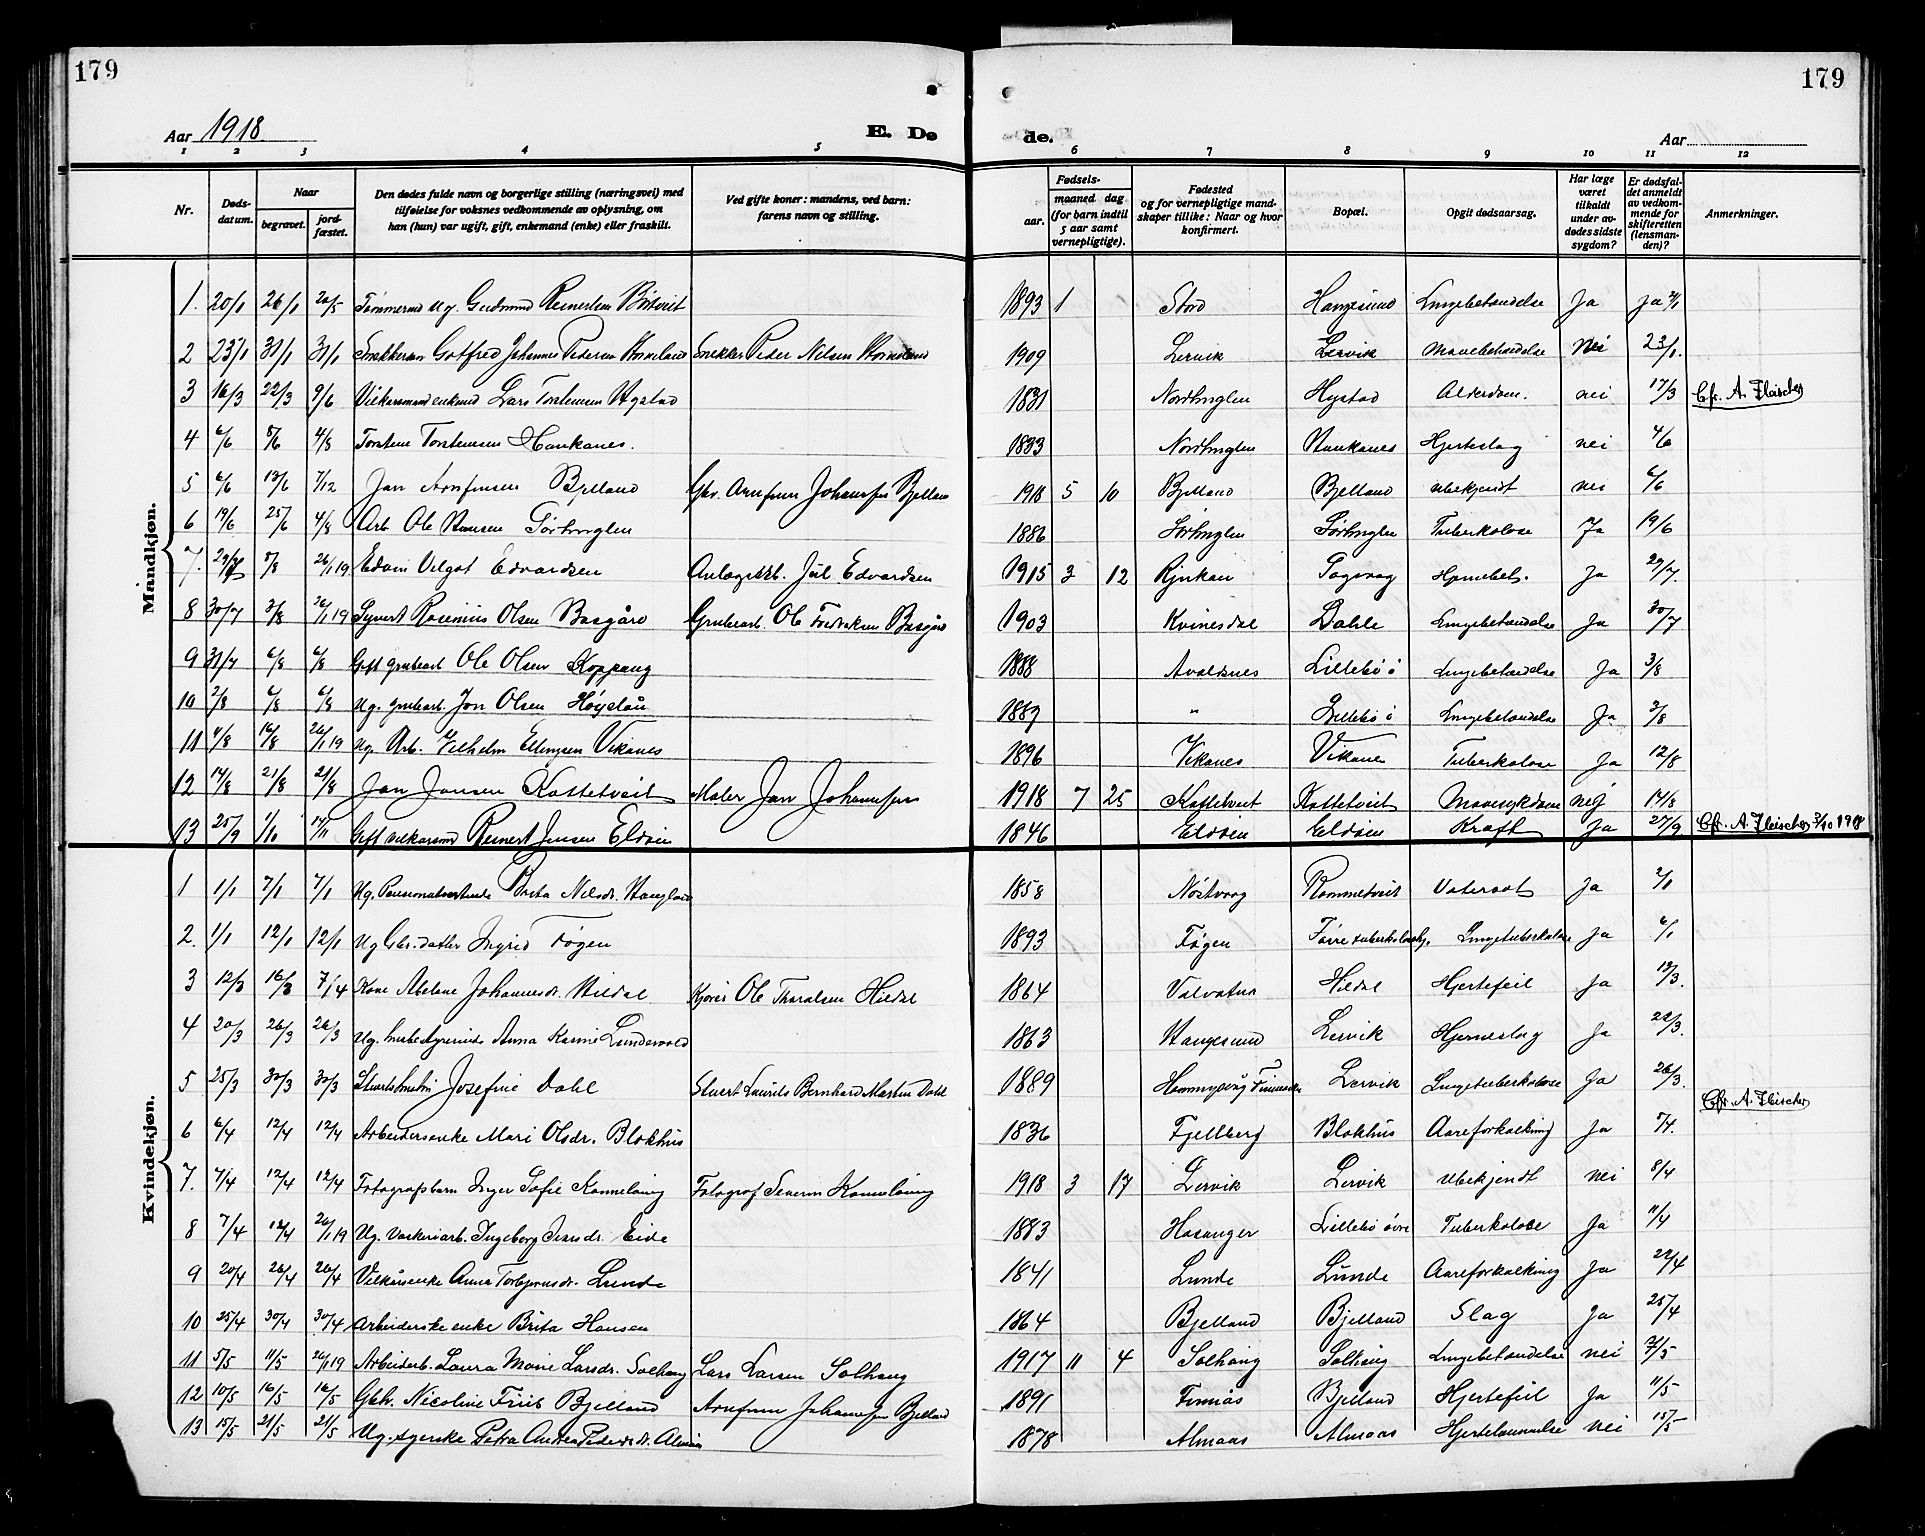 179
179
Aar 1918.
E. Dø
de.
Aar
1 2 3 4 5 6 7 8 9 10 11 12
Nr.
Døds-datum.
Naar
begravet.
jord-fæstet.
Den dødes fulde navn og borgerlige stilling (næringsvei) med tilføielse for voksnes vedkommende av oplysning, om han (hun) var ugift, gift, enkemand (enke) eller fraskilt.
Ved gifte koner: mandens, ved barn: farens navn og stilling.
Fødsels-
aar.
maaned dag (for barn indtil 5 aar samt vernepligtige).
Fødested og for vernepligtige mand-skaper tillike: Naar og hvor konfirmert.
Bopæl.
Opgit dødsaarsag.
Har læge været tilkaldt under av-dødes sidste sygdom?
Er dødsfal-det anmeldt av vedkom-mende for skifteretten (lensman-den)?
Anmerkninger.
Mandkjøn.
1. 20/1 26/1 20/5 Tømmermd ug. Gudmund Reinertsen 1893 1 Stord Haugesund Lungebetændelse Ja ja 21/1
2 23/1 31/1 31/1 Gotfred Johannes Pedersen Snekker Peder Nilsen 1909 Lervik Lervik Mavebetændelse Nei 23/1.
3 16/3 22/3 9/6 Vilkarsmand enkemd Lars Torstensen Hystad 1831 Nordhuglen Hystad Alderdom. nei 17/3 Cfr. A. Fleischer
4 6/6 8/6 4/8 Torstein Torstensen Haukanes. 1833 Nordhuglen Haukanes Hjerteslag nei 4/6
5 6/6 13/6 7/12 Jan Arnfinsen Bjelland Gbr. Arnfinn Johannesen Bjelland 1918 5 10 Bjelland Bjelland ubekjendt nei 6/6
6 19/6 25/6 4/8 Arb. Ole Hansen Sørhuglen 1886 Sørhuglen Sørhuglen Tuberkolose Ja 19/6
7. 29/7 8/8 26/1 19 Edvin Velgot Edvardsen Anlægsarb. Jul. Edvardsen 1915 3 12 Rjukan Sagvag Hjernebet. Ja 29/7.
8 30/7 3/8 26/1 19 Syvert Rasinius Olsen Basgård Grubearb. Ole Fredriksen Basgård 1903 Kvinesdal Dahle Lungebetændelse Ja 30/7
9 31/7 6/8 6/8 Gift grubearb Ole Olsen Koppang 1888 Avaldsnes Lillebø ø Lungebetændelse Ja 3/8
10 2/8 6/8 6/8 Ug. grubearb. Jon Olsen 1889 " Lillebø ø Lungebetændelse Ja 3/8
11 4/8 16/8 26/1 19 Ug. Arb. Vilhelm Ellingsen Vikanes 1896 Vikanes Vikanes Tuberkolose Ja 12/8
12 14/8 21/8 21/8 Jan Jansen Kattetveit Maler Jan Johannesen 1918 7 25 Kattetveit Kattetveit Mavesykdom nei 14/8
13 25/9 1/10 14/11 Gift vilkarsmd Reinert Jensen Eldøien 1846 Eldøien Eldøien Kræft Ja 27/9 Cfr. A. Fleischer 3/10 1918
Kvindekjøn.
1 1/1 7/1 7/1 Ug. Brita Nilsdr. Haugland 1858 Nøstvaag Rommetveit Vatersot Ja 2/1
2. 1/1 12/1 12/1 Ug Gbr.datter Ingrid Føgen 1893 Føgen Førre Lungetuberkolose Ja 6/1
3 12/3 16/3 7/4 Kone Abelone Johannesdr. Hildal Ole Thoralsen Hildal 1864 Valvatna Hildal Hjertefeil Ja 13/3.
4 20/3 26/3 26/3 Ug. Anna Karine Lundevold 1863 Haugesund Lervik Hjerneslag Ja 22/3.
5 25/3 30/3 30/3 Josefine Dahl Stuert Laurits Bernhard Martin Dahl 1889 Lervik Lungetuberkolose Ja 26/3.
Cfr. A. Fleischer
6 6/4 12/4 12/4 Arbeidersenke Mari Olsdr. Blokhus 1836 Fjellberg Blokhus Aareforkalkning Ja 7/4.
7. 7/4 12/4 12/4 Fotografsbarn Inger Sofie Fotograf Severin 1918 3 17 Lervik Lervik Ubekjendt nei 8/4
8 7/4 12/4 26/1 19 Ug. vaskeriarb. Ingeborg Eide 1883 Lillebø øvre Tuberkolose Ja 11/4
9 20/4 26/4 26/4 Vilkårsenke Anna Torbjørnsdr. Lunde 1841 Lunde Lunde Aareforkalkning Ja 22/4
10 25/4 30/4 30/4 Arbeiderske enke Brita Hansen 1864 Bjelland Bjelland Slag Ja 25/4
11 5/5 11/5 26/1 19 Arbeiderb. Laura Marie Larsdr. Solhaug Lars Larsen Solhaug 1917 11 4 Solhaug Solhaug Lungebetændelse nei 7/5
12 10/5 16/5 16/5 Gbk. Nicoline Friis Bjelland Arnfinn Johannesen Bjelland 1891 Bjelland Hjertefeil Ja 11/5
13 15/5 21/5 21/5 Ug. syerske Petra Andrea Pedersdr. Almaas 1878 Almaas Almaas Hjertelammelse nei 15/5